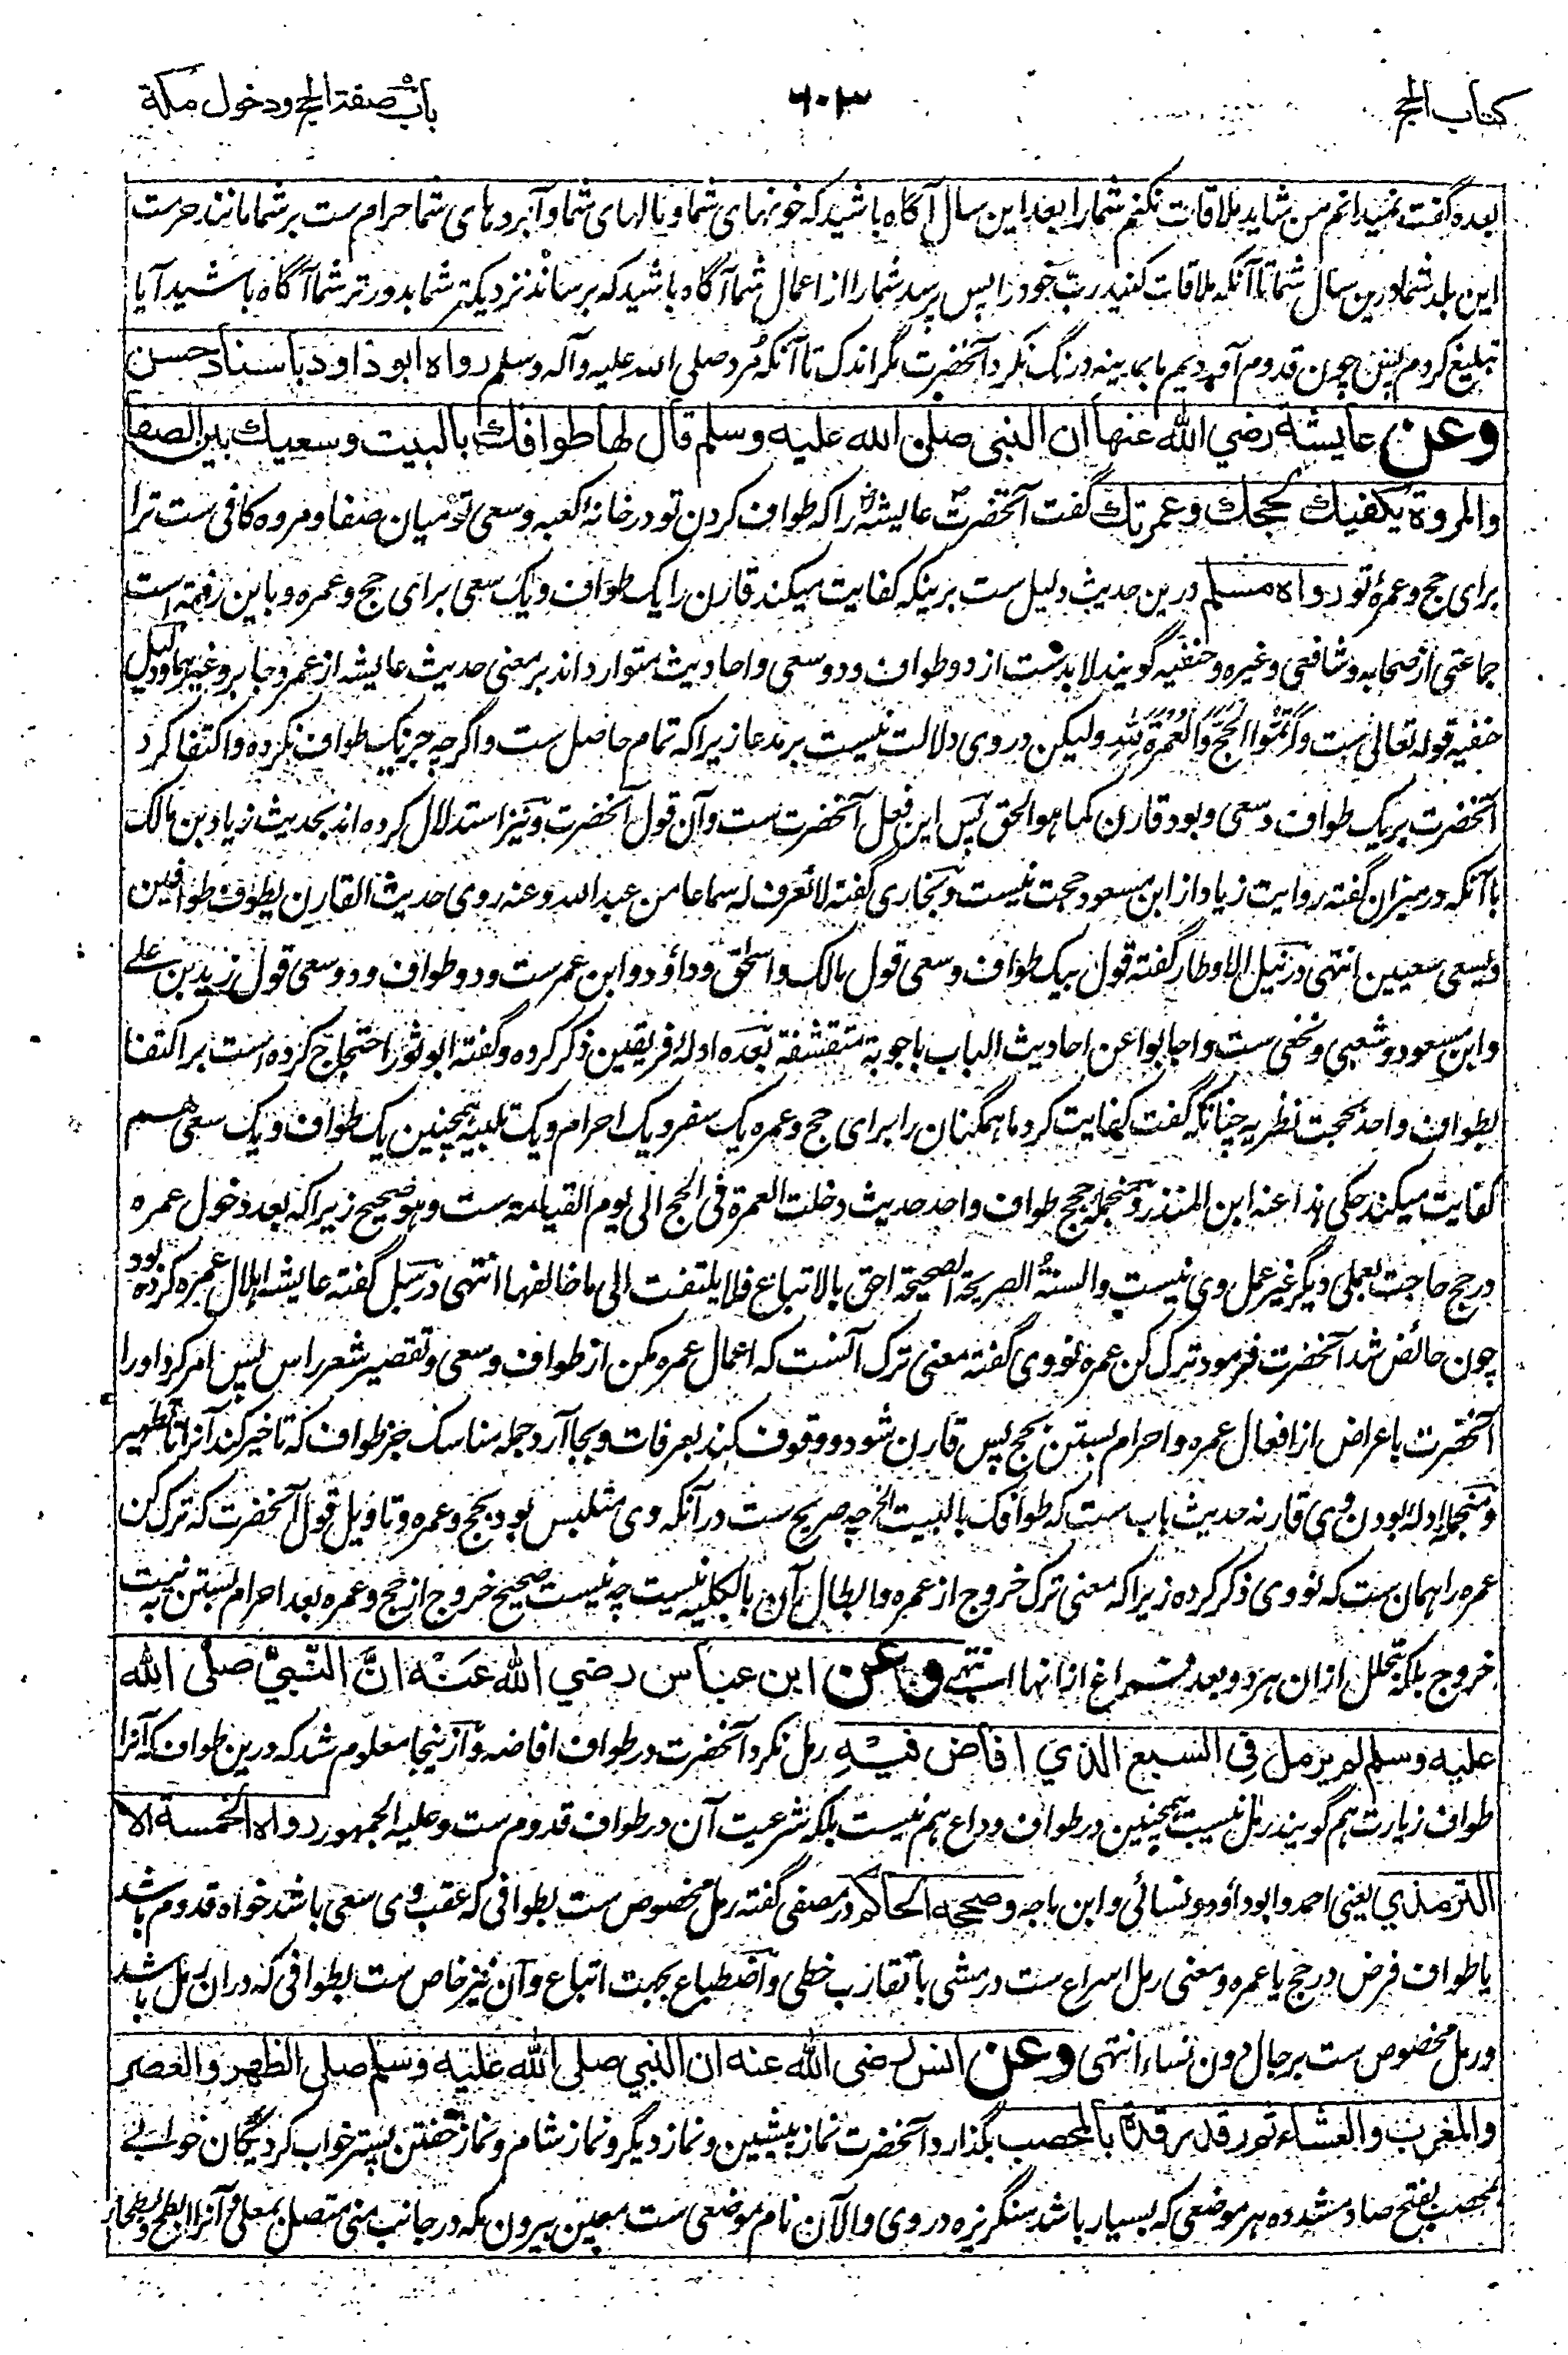 کتاب الحج
۶۰۳
باب صفة الحج ودخول مکة
بعده گفت نمیدانم من شاید ملاقات نکنم شما را بعد این سال آگاه باشید که خونهای شما و مالهای شما و آبروهای شما حرام ست بر شما مانند حرمت
این بلد شما درین سال شما تا آنکه ملاقات کنید رب خود را پس پرسد شما را از اعمال شما آگاه باشید که برساند نزدیکتر شما بدورتر شما آگاه باشید آیا
تبلیغ کردم پس چون قدوم آوردیم ما بمدینه درنگ نکرد آنحضرت مگر اندک تا آنکه مرد صلی الله علیه وآله وسلم رواه ابو داود باسناد حسن
وعن عایشة رضي الله عنها ان النبی صلی الله علیه وسلم قال لها طوافك بالبیت وسعیك بین الصفا
والمروة یکفیك لحجك وعمرتك گفت آنحضرت عایشه را که طواف کردن تو در خانهٔ کعبه وسعی تو میان صفا و مروه کافی ست ترا
برای حج وعمرهٔ تو رواه مسلم درین حدیث دلیل ست برینکه کفایت میکند قارن را یک طواف ویک سعی برای حج وعمره وباین رفته است
جماعتی از صحابه وشافعی وغیره وحنفیه گویند لابدست از دو طواف ودو سعی واحادیث متوارد اند بر معنی حدیث عایشه از عمر وجابر وغیرهما ودلیل
حنفیه قوله تعالی ست واتموا الحج والعمرة لله ولیکن در وی دلالت نیست بر مدعا زیرا که تمام حاصل ست واگرچه جز یک طواف نکرده واکتفا کرد
آنحضرت بر یک طواف وسعی وبود قارن کما هو الحق پس این فعل آنحضرت ست وآن قول آنحضرت ونیز استدلال کرده اند بحدیث زیاد بن مالک
باآنکه در میزان گفته روایت زیاد از ابن مسعود حجت نیست وبخاری گفته لا تعرف له سماعا من عبد الله وعنه روی حدیث القارن یطوف طوافین
ویسعی سعیین انتهی در نیل الاوطار گفته قول بیک طواف وسعی قول مالک واسحٰق وداؤد وابن عمرست ودو طواف ودو سعی قول زید بن علے
وابن مسعود وشعبی ونخعی ست واجابوا عن احادیث الباب باجوبة متقشفة بعده ادلهٔ فریقین ذکر کرده وگفته ابو ثور احتجاج کرده است بر اکتفا
بطواف واحد بحجت نظریه چنانکه گفت کفایت کرد ما همگنان را برای حج وعمره یک سفر ویک احرام ویک تلبیه همچنین یک طواف ویک سعی هم
کفایت میکند حکی هذا عنه ابن المنذر ومنجملهٔ حجج طواف واحد حدیث دخلت العمرة فی الحج الی یوم القیامة ست وهو صحیح زیرا که بعد دخول عمره
در حج حاجت بعملی دیگر غیر عمل وی نیست والسنة الصریحة الصحیحة احق بالاتباع فلا یلتفت الی ما خالفها انتهی در سبل گفته عایشه اهلال بعمره کرده بود
چون حائض شد آنحضرت فرمود ترک کن عمره نووی گفته معنی ترک آنست که اعمال عمره مکن از طواف وسعی وتقصیر شعر راس پس امر کرد او را
آنحضرت باعراض از افعال عمره واحرام بستن بحج پس قارن شود ووقوف کند بعرفات وبجا آرد جمله مناسک جز طواف که تاخیر کند آنرا تا تطهیر
ومنجملهٔ ادلهٔ بودن وی قارنه حدیث باب ست که طوافک بالبیت الخ چه صریح ست در آنکه وی متلبس بود بحج وعمره وتاویل قول آنحضرت که ترک کن
عمره را همان ست که نووی ذکر کرده زیرا که معنی ترک خروج از عمره وابطال آن بالکلیه نیست چه نیست صحیح خروج از حج وعمره بعد احرام بستن به نیت
خروج بلکه بتحلل ازان هر دو بعد فراغ ازانها انتهے وعن ابن عباس رضي الله عنه ان النبي صلی الله
علیه وسلم لم یرمل فی السبع الذي افاض فیه رمل نکرد آنحضرت در طواف افاضه وازینجا معلوم شد که درین طواف که آنرا
طواف زیارت هم گویند رمل نیست همچنین در طواف وداع هم نیست بلکه شرعیت آن در طواف قدوم ست وعلیه الجمهور رواه الخمسة الا
الترمذي یعنی احمد وابو داؤد ونسائی وابن ماجه وصححه الحاکم در مصفی گفته رمل مخصوص ست بطوافی که عقب وی سعی باشد خواه قدوم باشد
یا طواف فرض در حج یا عمره ومعنی رمل اسراع ست در مشی با تقارب خطی واضطباع بجهت اتباع وآن نیز خاص ست بطوافی که دران رمل باشد
ورمل مخصوص ست برجال دون نساء انتهی وعن انس رضی الله عنه ان النبي صلی الله علیه وسلم صلی الظهر والعصر
والمغرب والعشاء ثم رقد رقدة بالمحصب بگذارد آنحضرت نماز پیشین ونماز دیگر ونماز شام ونماز خفتن پستر خواب کرد خوابے
محصب بفتح صاد مشدده هر موضعی که بسیار باشد سنگریزه در وی والآن نام موضعی ست معین بیرون مکه در جانب منی متصل بمعلی وآنرا ابطح وبطحا